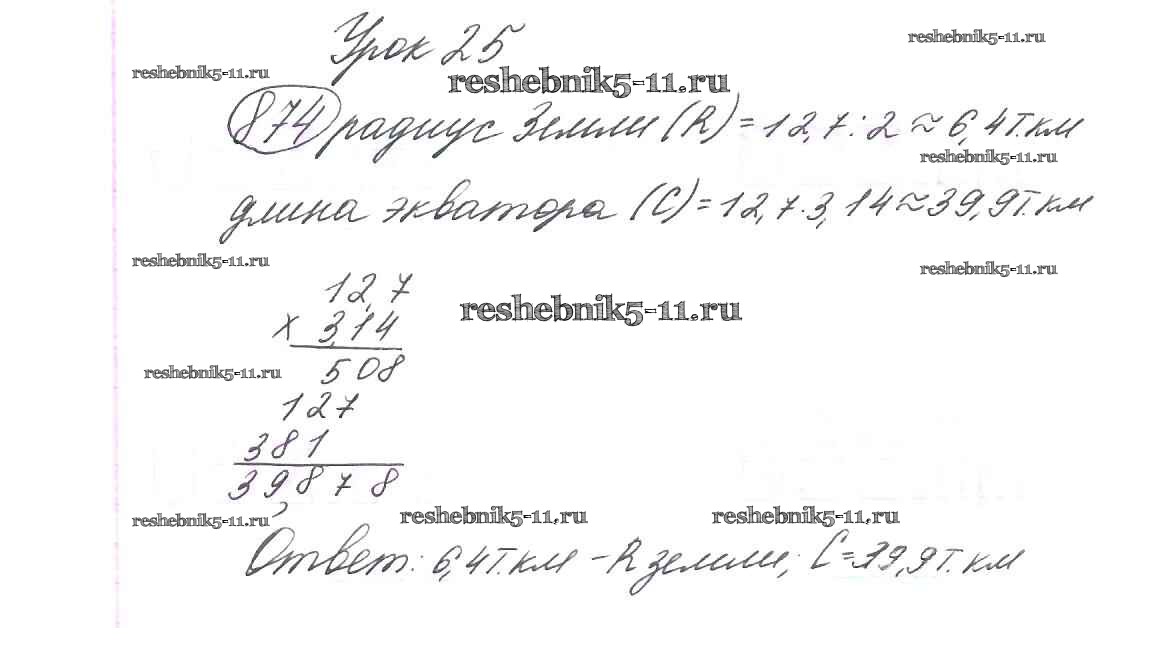 Урок 25
reshebnik5-11.ru
reshebnik5-11.ru
reshebnik5-11.ru
874 радиус Земли (R) = 12,7 : 2 ≈ 6,4 т. км
reshebnik5-11.ru
длина экватора (С) = 12,7 · 3,14 ≈ 39,9 т. км
reshebnik5-11.ru
reshebnik5-11.ru
12,7
reshebnik5-11.ru
× 3,14
508
reshebnik5-11.ru
127
381
39,878
reshebnik5-11.ru
reshebnik5-11.ru
reshebnik5-11.ru
Ответ: 6,4 т. км – R земли; С = 39,9 т. км